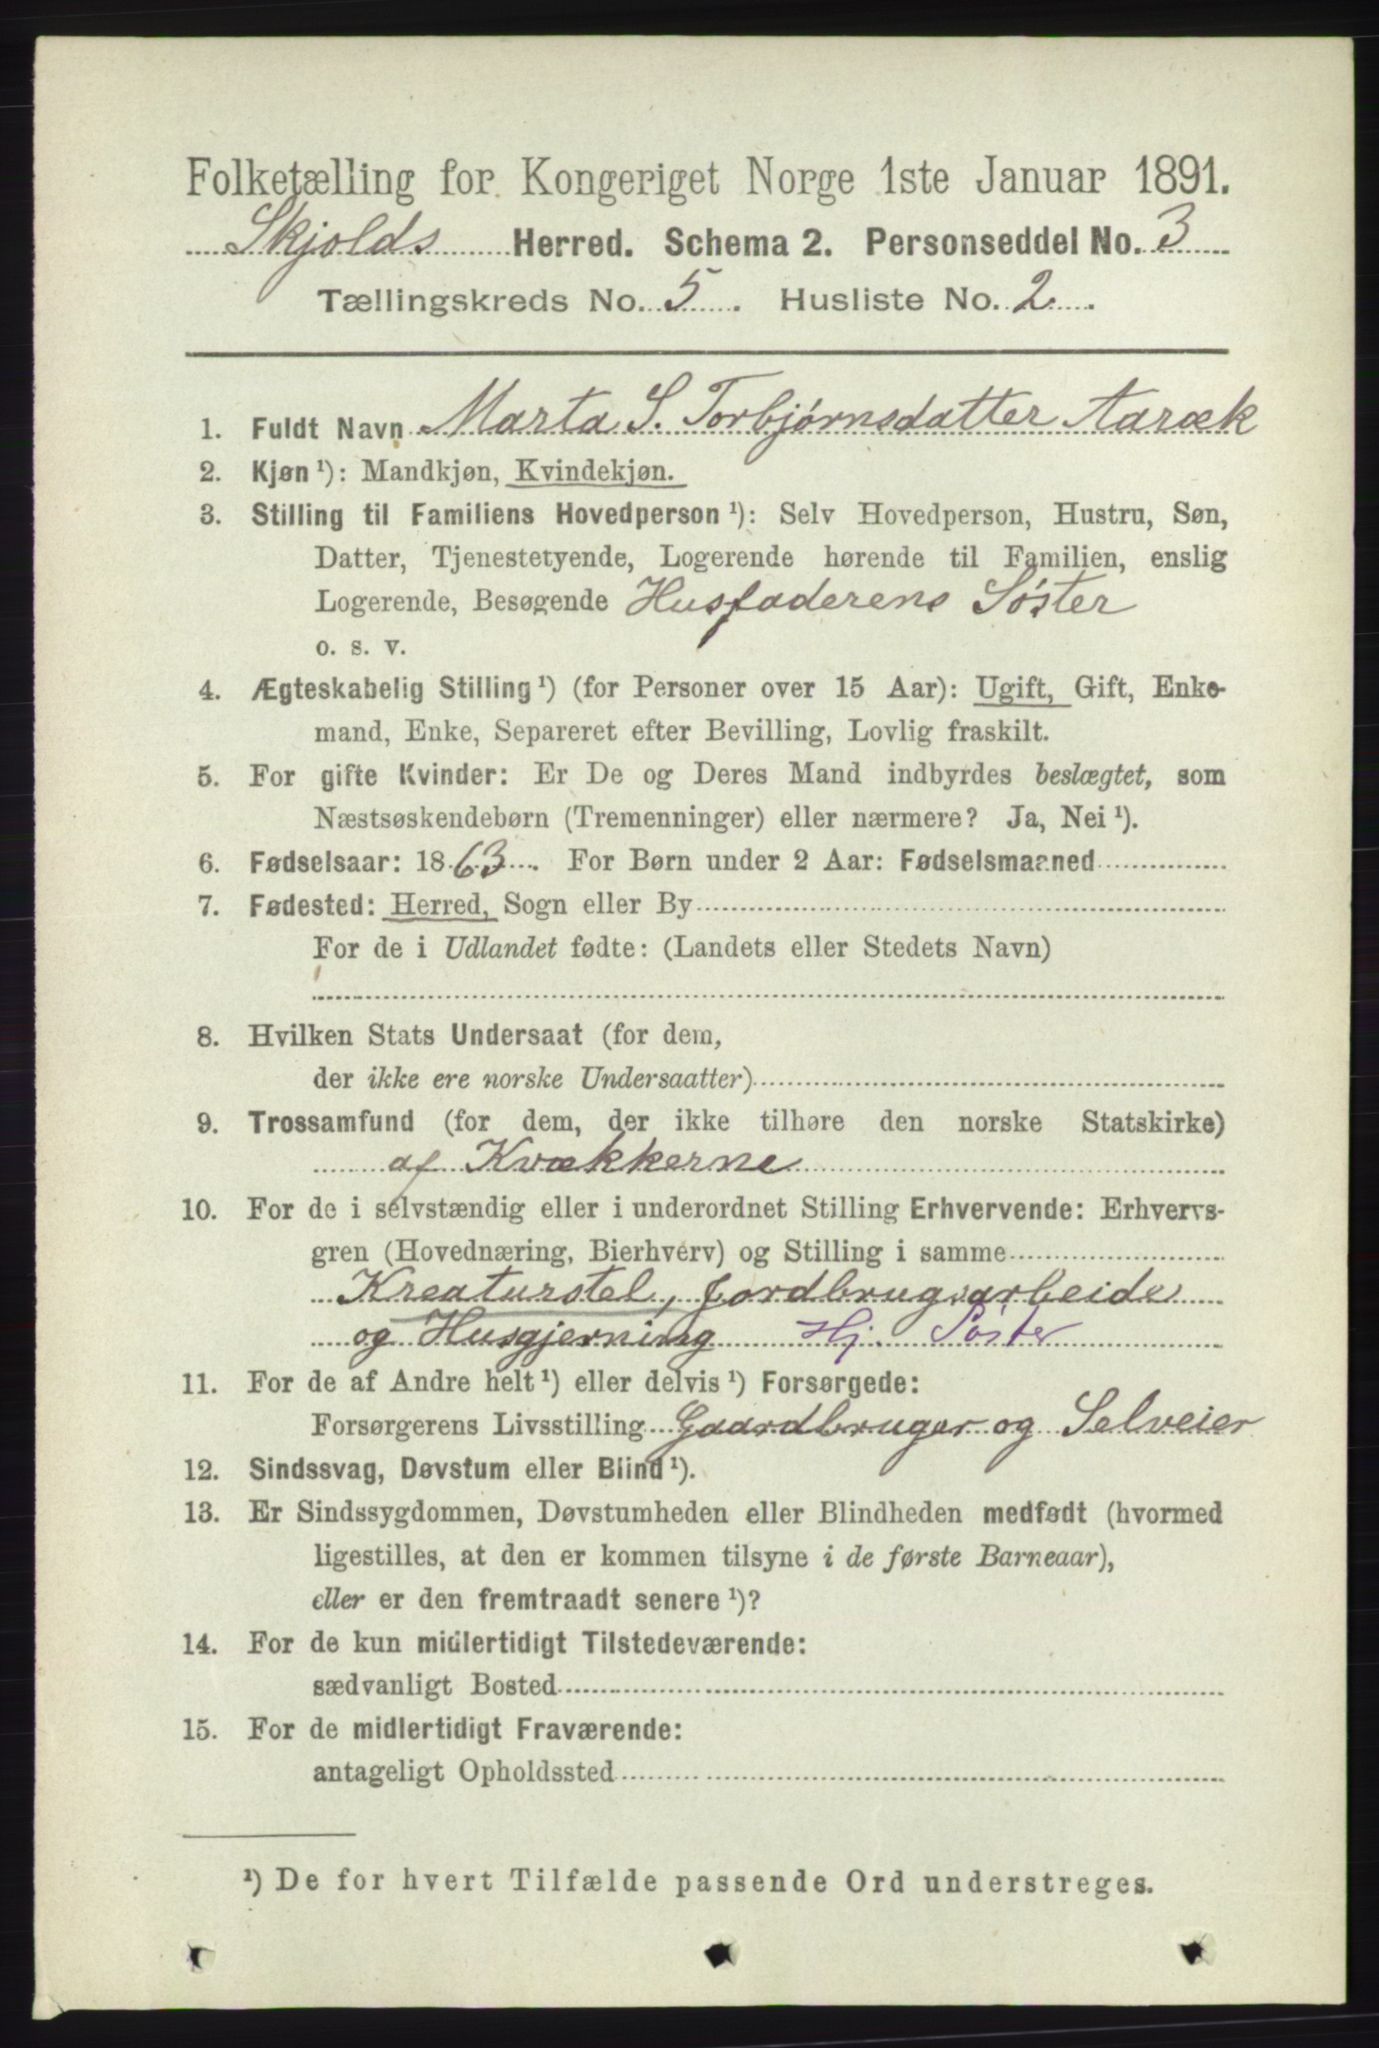 Folketælling for Kongeriget Norge 1ste Januar 1891.
Skjolds Herred. Schema 2. Personseddel No. 3
Tællingskreds No. 5. Husliste No. 2.
1. Fuldt Navn Marta S. Torbjørnsdatter Aaræk
2. Kjøn ¹): Mandkjøn, Kvindekjøn.
3. Stilling til Familiens Hovedperson ¹): Selv Hovedperson, Hustru, Søn,
Datter, Tjenestetyende, Logerende hørende til Familien, enslig
Logerende, Besøgende Husfaderens Søster
o. s. v.
4. Ægteskabelig Stilling ¹) (for Personer over 15 Aar): Ugift, Gift, Enke-
mand, Enke, Separeret efter Bevilling, Lovlig fraskilt.
5. For gifte Kvinder: Er De og Deres Mand indbyrdes beslægtet, som
Næstsøskendebørn (Tremenninger) eller nærmere? Ja, Nei ¹).
6. Fødselsaar: 1863. For Børn under 2 Aar: Fødselsmaaned
7. Fødested: Herred, Sogn eller By
For de i Udlandet fødte: (Landets eller Stedets Navn)
8. Hvilken Stats Undersaat (for dem,
der ikke ere norske Undersaatter)
9. Trossamfund (for dem, der ikke tilhøre den norske Statskirke)
af Kvækkerne
10. For de i selvstændig eller i underordnet Stilling Erhvervende: Erhvervs-
gren (Hovednæring, Bierhverv) og Stilling i samme
Kreaturstel, Jordbrugsarbeide
og Husgjerning Hj. Søster
11. For de af Andre helt ¹) eller delvis ¹) Forsørgede:
Forsørgerens Livsstilling Gaardbruger og Selveier
12. Sindssvag, Døvstum eller Blind ¹).
13. Er Sindssygdommen, Døvstumheden eller Blindheden medfødt (hvormed
ligestilles, at den er kommen tilsyne i de første Barneaar),
eller er den fremtraadt senere ¹)?
14. For de kun midlertidigt Tilstedeværende:
sædvanligt Bosted
15. For de midlertidigt Fraværende:
antageligt Opholdssted
¹) De for hvert Tilfælde passende Ord understreges.